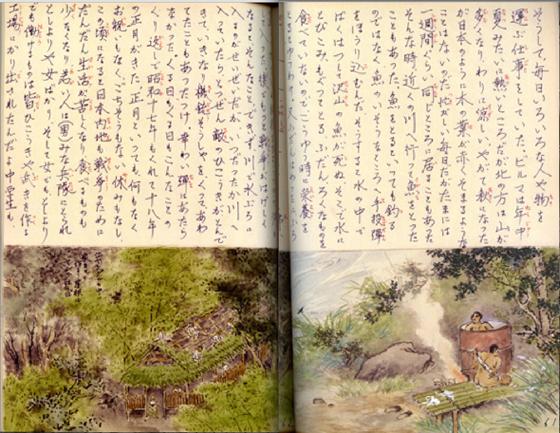 そうして毎日いろいろな人や物を
運ぶ仕事をしていた。ビルマは年中
夏みたいに熱いところだが北の方は山が
高くなり、わりに涼しい、やがて秋になった
が日本のように木の葉が赤くそまるような
ことはないのだ。毎日だがたまには
一週間くらい同じところに居ることもあった
そんな時近くの川へ行って魚をとった
こともあった。魚をとるといっても釣る
のではない魚のいそうなところへ手投弾
をほうり込むんだそうすると水の中で
ばくはつし沢山の魚が死ぬそこで水に
とびこみもぐってとる ふだんろくなものを
食べていないのでこうゆう時に栄養を
入ったり
なるとそんなこともできず、川で水ぶろに
入るのがせいぜいだがつったかり川へ
入っていたらとつぜん敵ひこうきがとんで
きて、いきなり機銃そうしゃをくらってあわ
てたこともあったっけ幸い弾はあたら
なかった。くる日もくる日もこんなことのく
り返しで昭和十七年もくれて十八年
の正月がきた正月といっても何もなく
お祝もなくごちそうもない休みもなし。
この頃になると日本内地も戦争のため
だんだん生活が苦しくなり食べるものも
少くなり若い人は皆みな兵隊にとられ
としよりや女ばかり、そして女でも、としより
でも働けるものは皆ひこうきや武きを作る
工場にかり出されたんだよ中学生も